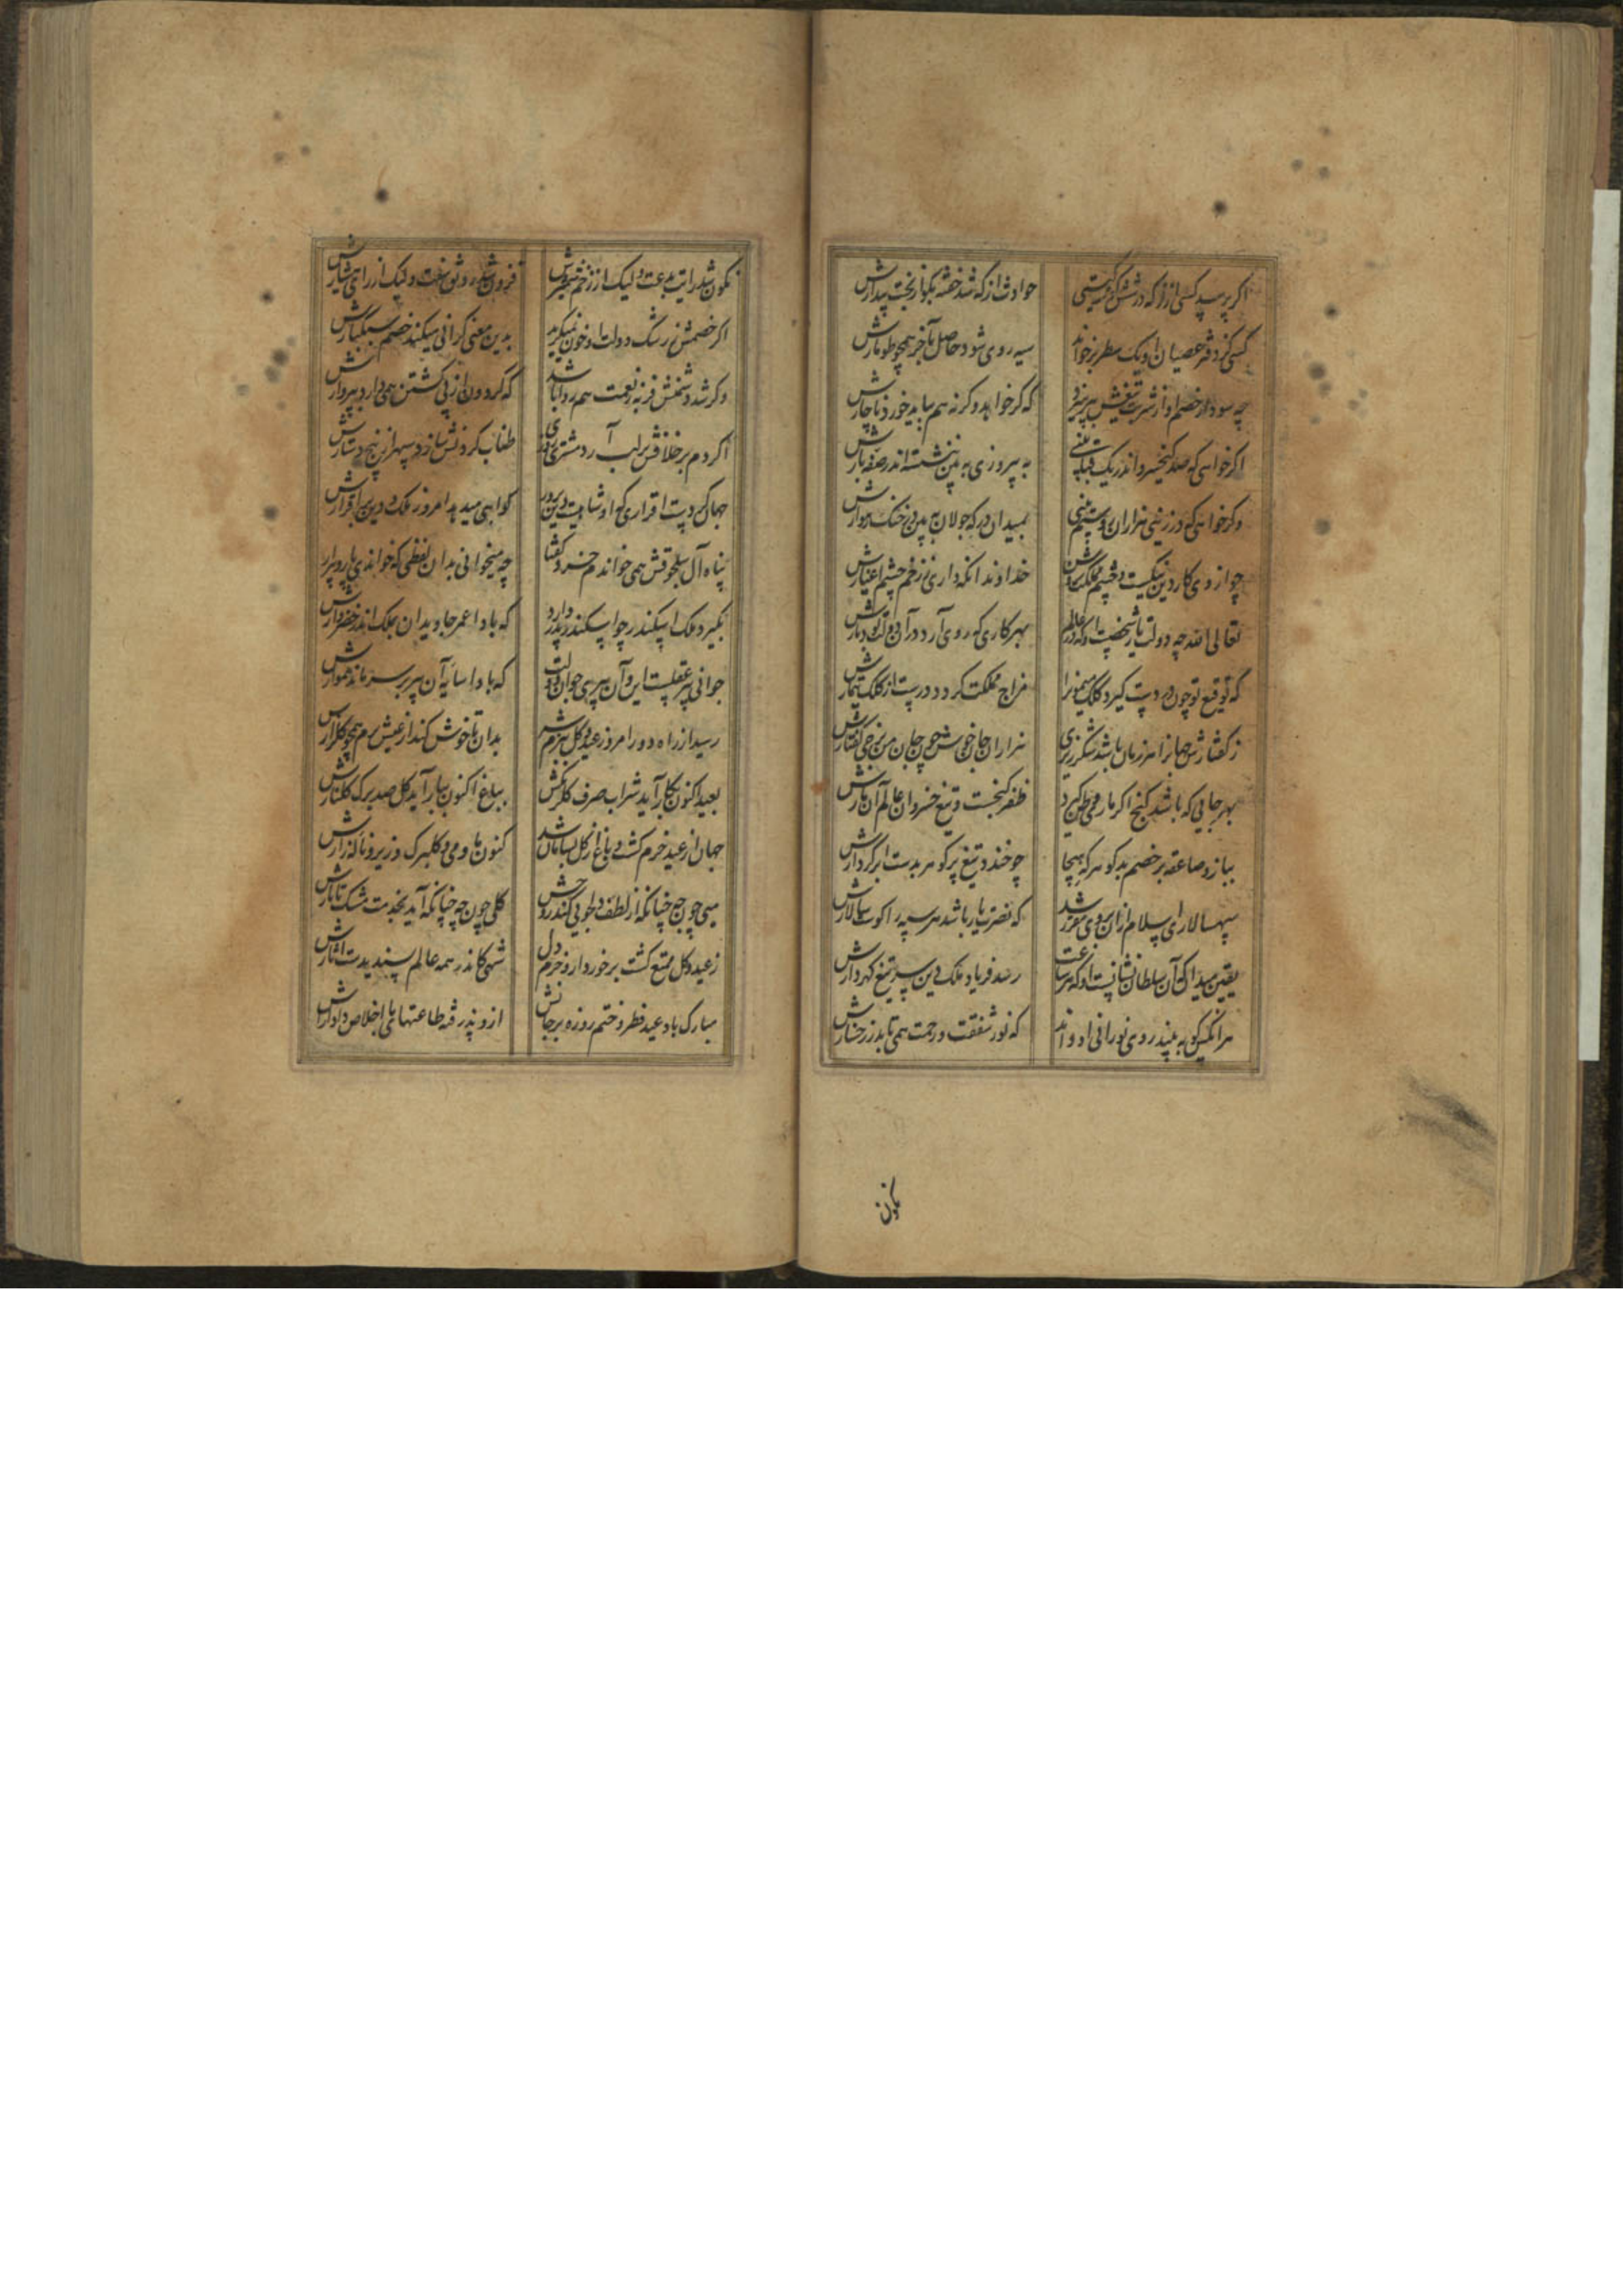 اگر پرسد کسی از تو که درشش گوشه گیتی حوادث از که شد خفته بگو از بخت بیدارش
کسی کز دفتر عصیان او یک سطر برخواند سیه روی شود حاصل بآخر همچو طومارش
چه سود ار خصم او از شربت تیغش بپرهیزد که گر خواهد وگرنه هم بباید خورد ناچارش
اگر خواهی که صد کیخسرو اندر یک قبا بینی به پیروزی به بین بنشسته اندر صفه بارش
وگر خواهی که در زینی هزاران روستم بینی بمیدان در که جولان به بین در خنگ رهوارش
چو از وی کار دین نیکست و چشم مملکت روشن خداوندا نگه داری ز زخم چشم اغیارش
تعالی الله چه دولت یار شخصست او که در عالم بهر کاری که روی آرد در آن دولت بود یارش
که توقیع تو چون در دست گیرد کلک میمون را مزاج مملکت گردد درست از کلک بیمارش
ز گفتارش جهان را هر زمان باشد شکرریزی هزاران جان خوش چون جان من برخی گفتارش
بهر جایی که باشد گنج اگر ماری وطن گیرد ظفر گنجست و تیغ خسروان عالم آن مارش
ببازد صاعقه بر خصم بدگوهر که هیجا چو خندد تیغ پر گوهر بدست ابر کردارش
سپهسالاری اسلام ازان بر وی مقرر شد که نصرت یار باشد هر سپه را کوست سالارش
یقین میدان که آن سلطان نشانست او که هر ساعت رسد فریاد ملک و دین سر تیغ گهردارش
هر انکس کو به بیند روی نورانی او داند که نور شفقت و رحمت همی تابد ز رخسارش
نگون
نگون شد رایت بدعت ولیک از زخم شمشیرش فزون شد رونق سنت ولیک از رای هشیارش
اگر خصمش ز رشک دولت او خون نمیگرید به این معنی گرانی میکند خصم سبکسارش
وگر شد دشمنش فربه ز نعمت هم روا باشد که گردون از پی کشتن همی دارد بپروارش
اگر دم بر خلافش بر لب آرد مشتری روزی طناب گردنش سازد سپهر از پیچ دستارش
جهان کردست اقراری که او شاهیست دین پرور گواهی میدهد امروز ملک و دین بر اقرارش
پناه آل سلجوقش همی خواندم خرد گفتا چه میخوانی بدان لفظی که خواندی پار و پیرارش
بگیرد ملک اسکندر چو اسکندر پدر دارد که بادا عمر جاویدان بملک اندر خضروارش
جوانی پیر عقلست این و آن پیری جوان دولت که بادا سایه آن پیر بر سر مانده هموارش
رسید از راه دور امروز عید و گل ببزمش بدان تا خوش کند از عیش بزم همچو گلزارش
بعید اکنون بکار آید شراب صرف گلرنگش بباغ اکنون ببار آید گل صد برگ گلنارش
جهان از عید خرم گشت و باغ از گل بسامان شد کنون ما و می و گلبرگ و زیر و ناله زارش
میی چون چه چنانکه از لطف دلجویی کند روحش گلی چون چه چنانکه آید بخدمت مشک تاتارش
ز عید و گل تمتع گشت برخوردار و خرم دل شهی کاندر همه عالم پسندیدست آثارش
مبارک باد عید فطر و ختم روزه بر جانش ازو پذرفته طاعتهای با اخلاص دادارش